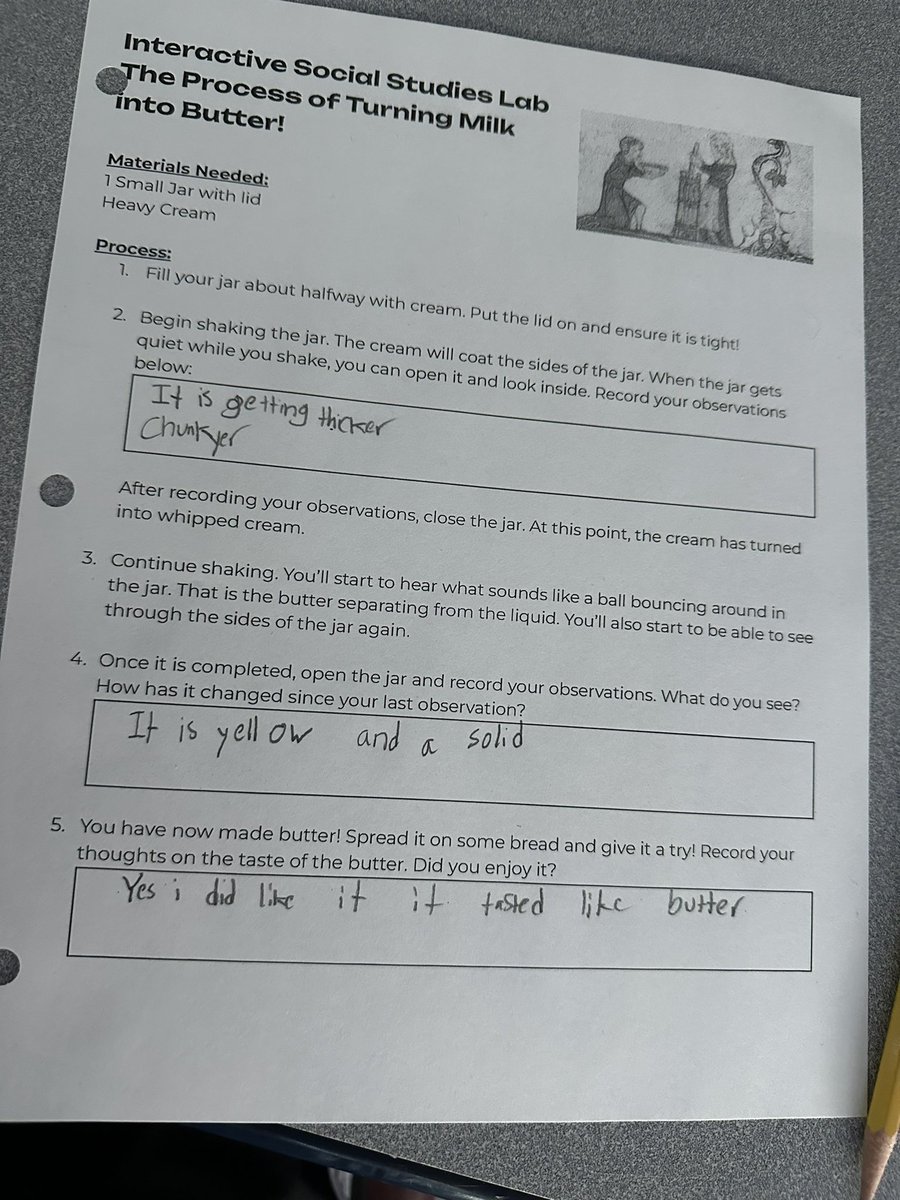 Interactive Social Studies Lab
The Process of Turning Milk
into Butter!
Materials Needed:
1 Small Jar with lid
Heavy Cream
Process:
1. Fill your jar about halfway with cream. Put the lid on and ensure it is tight!
2. Begin shaking the jar. The cream will coat the sides of the jar. When the jar gets
quiet while you shake, you can open it and look inside. Record your observations
below:
It is getting thicker
Chunkyer
After recording your observations, close the jar. At this point, the cream has turned
into whipped cream.
3. Continue shaking. You'll start to hear what sounds like a ball bouncing around in
the jar. That is the butter separating from the liquid. You'll also start to be able to see
through the sides of the jar again.
4. Once it is completed, open the jar and record your observations. What do you see?
How has it changed since your last observation?
It is yellow and a solid
5. You have now made butter! Spread it on some bread and give it a try! Record your
thoughts on the taste of the butter. Did you enjoy it?
Yes i did like it it tasted like butter